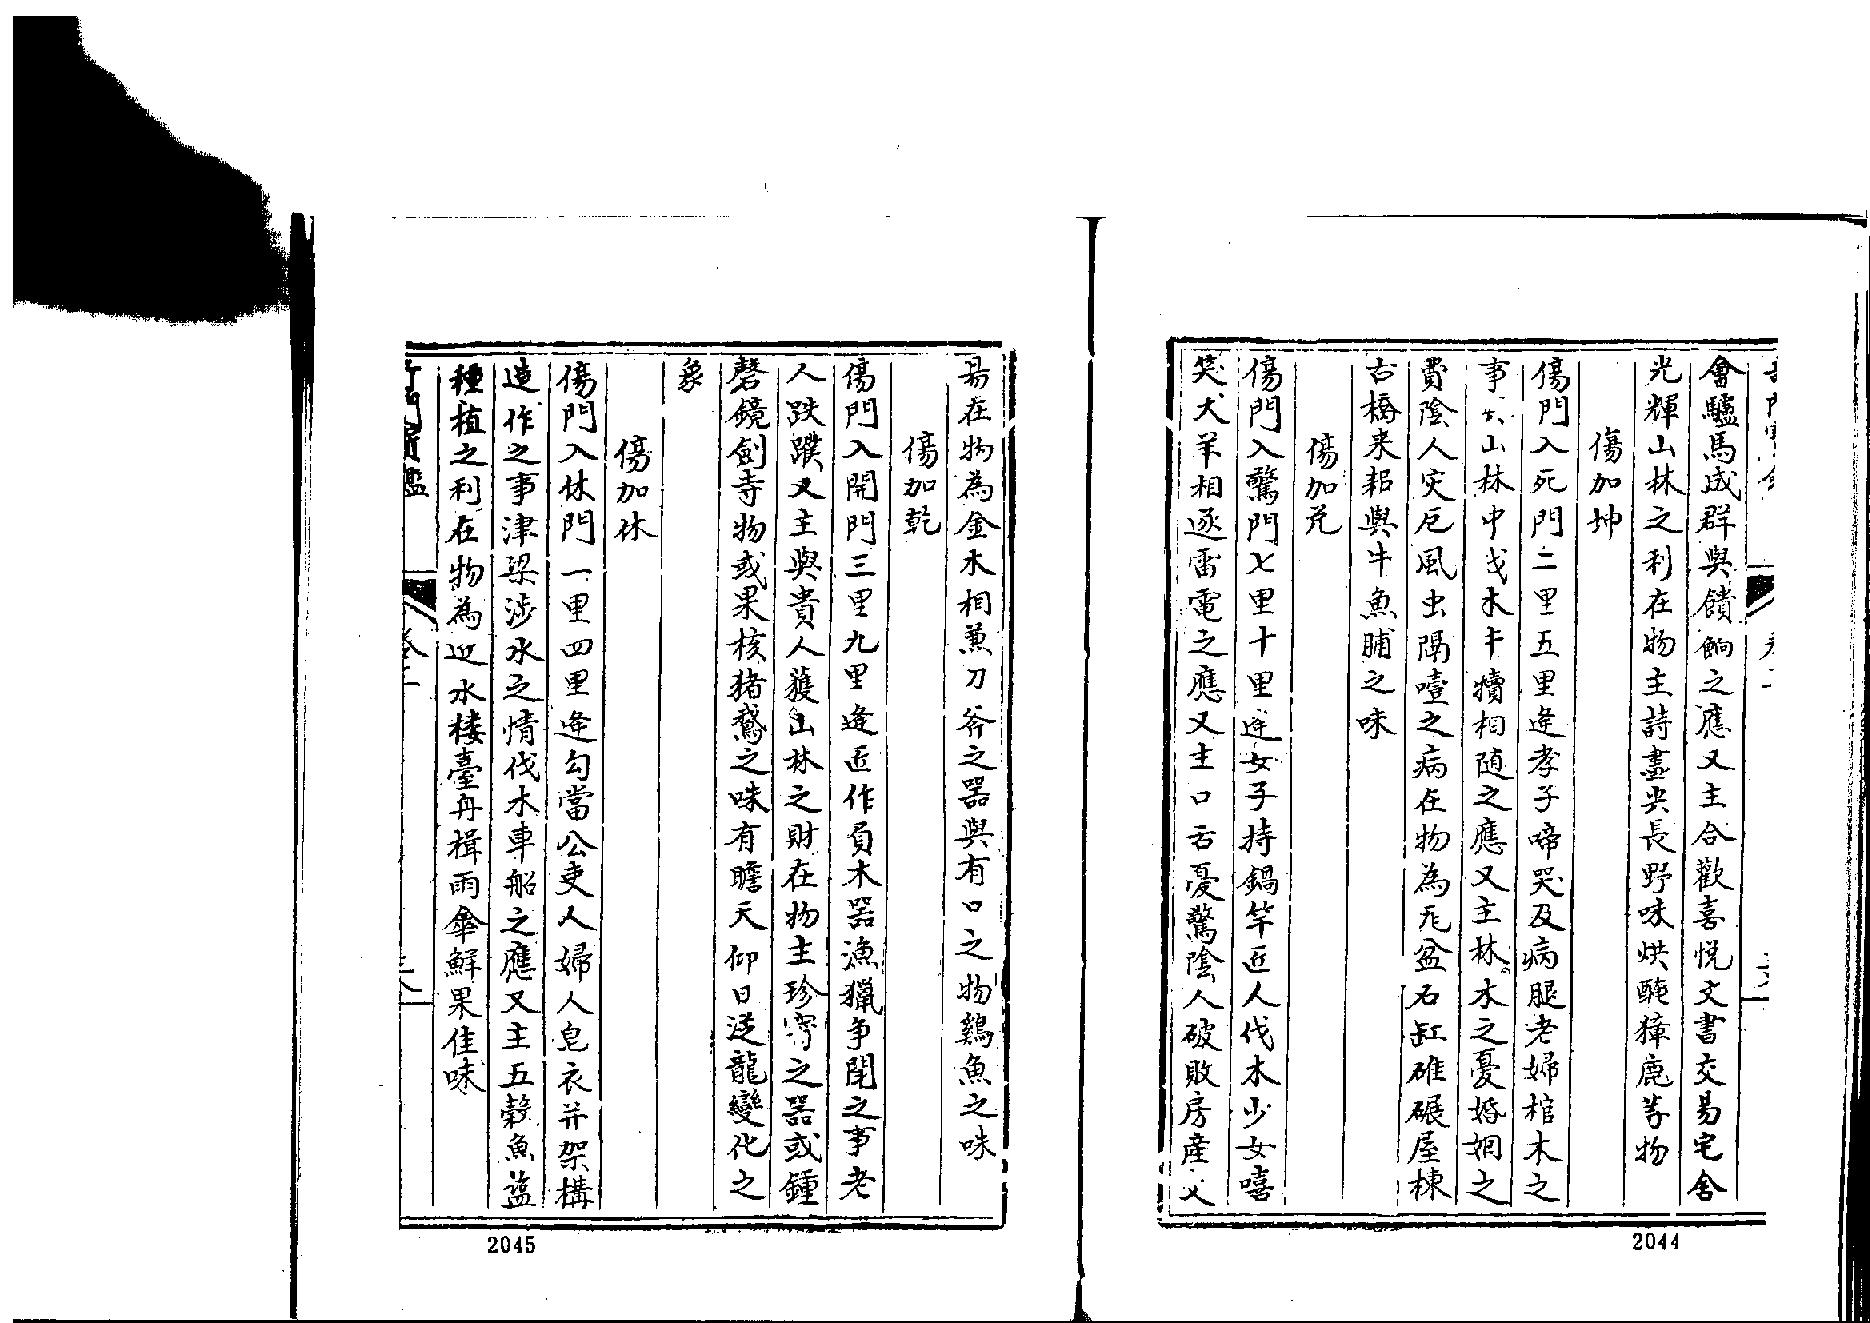 會驢馬成群與饋餉之應又主合歡喜悅文書交易宅舍
光輝山林之利在物主詩畫尖長野味烘醃獐鹿等物
傷加坤
傷門入死門二里五里逢孝子啼哭及病腿老婦棺木之
事山林中伐木牛犢相隨之應又主林木之憂婚姻之
費陰人灾厄風虫隔噎之病在物為瓦盆石缸碓碾屋棟
古橋来耜與牛魚脯之味
傷加兌
傷門入驚門七里十里逢女子持鍋竿近人伐木少女嘻
笑犬羊相逐雷電之應又主口舌憂驚陰人破敗房産文
2044
昜在物為金木相兼刀斧之器與有口之物鷄魚之味
傷加乾
傷門入開門三里九里逢匠作負木器漁獵争鬪之事老
人跌蹼又主與貴人獲山林之財在物主珍寳之器或鍾
磬鏡劍寺物或果核猪鵞之味有瞻天仰日逆龍變化之
象
傷加休
傷門入休門一里四里逢勾當公吏人婦人皂衣并架構
造作之事津梁涉水之情伐木車船之應又主五穀魚蓝
種植之利在物為近水楼臺舟楫雨傘鮮果佳味
鑑
2045